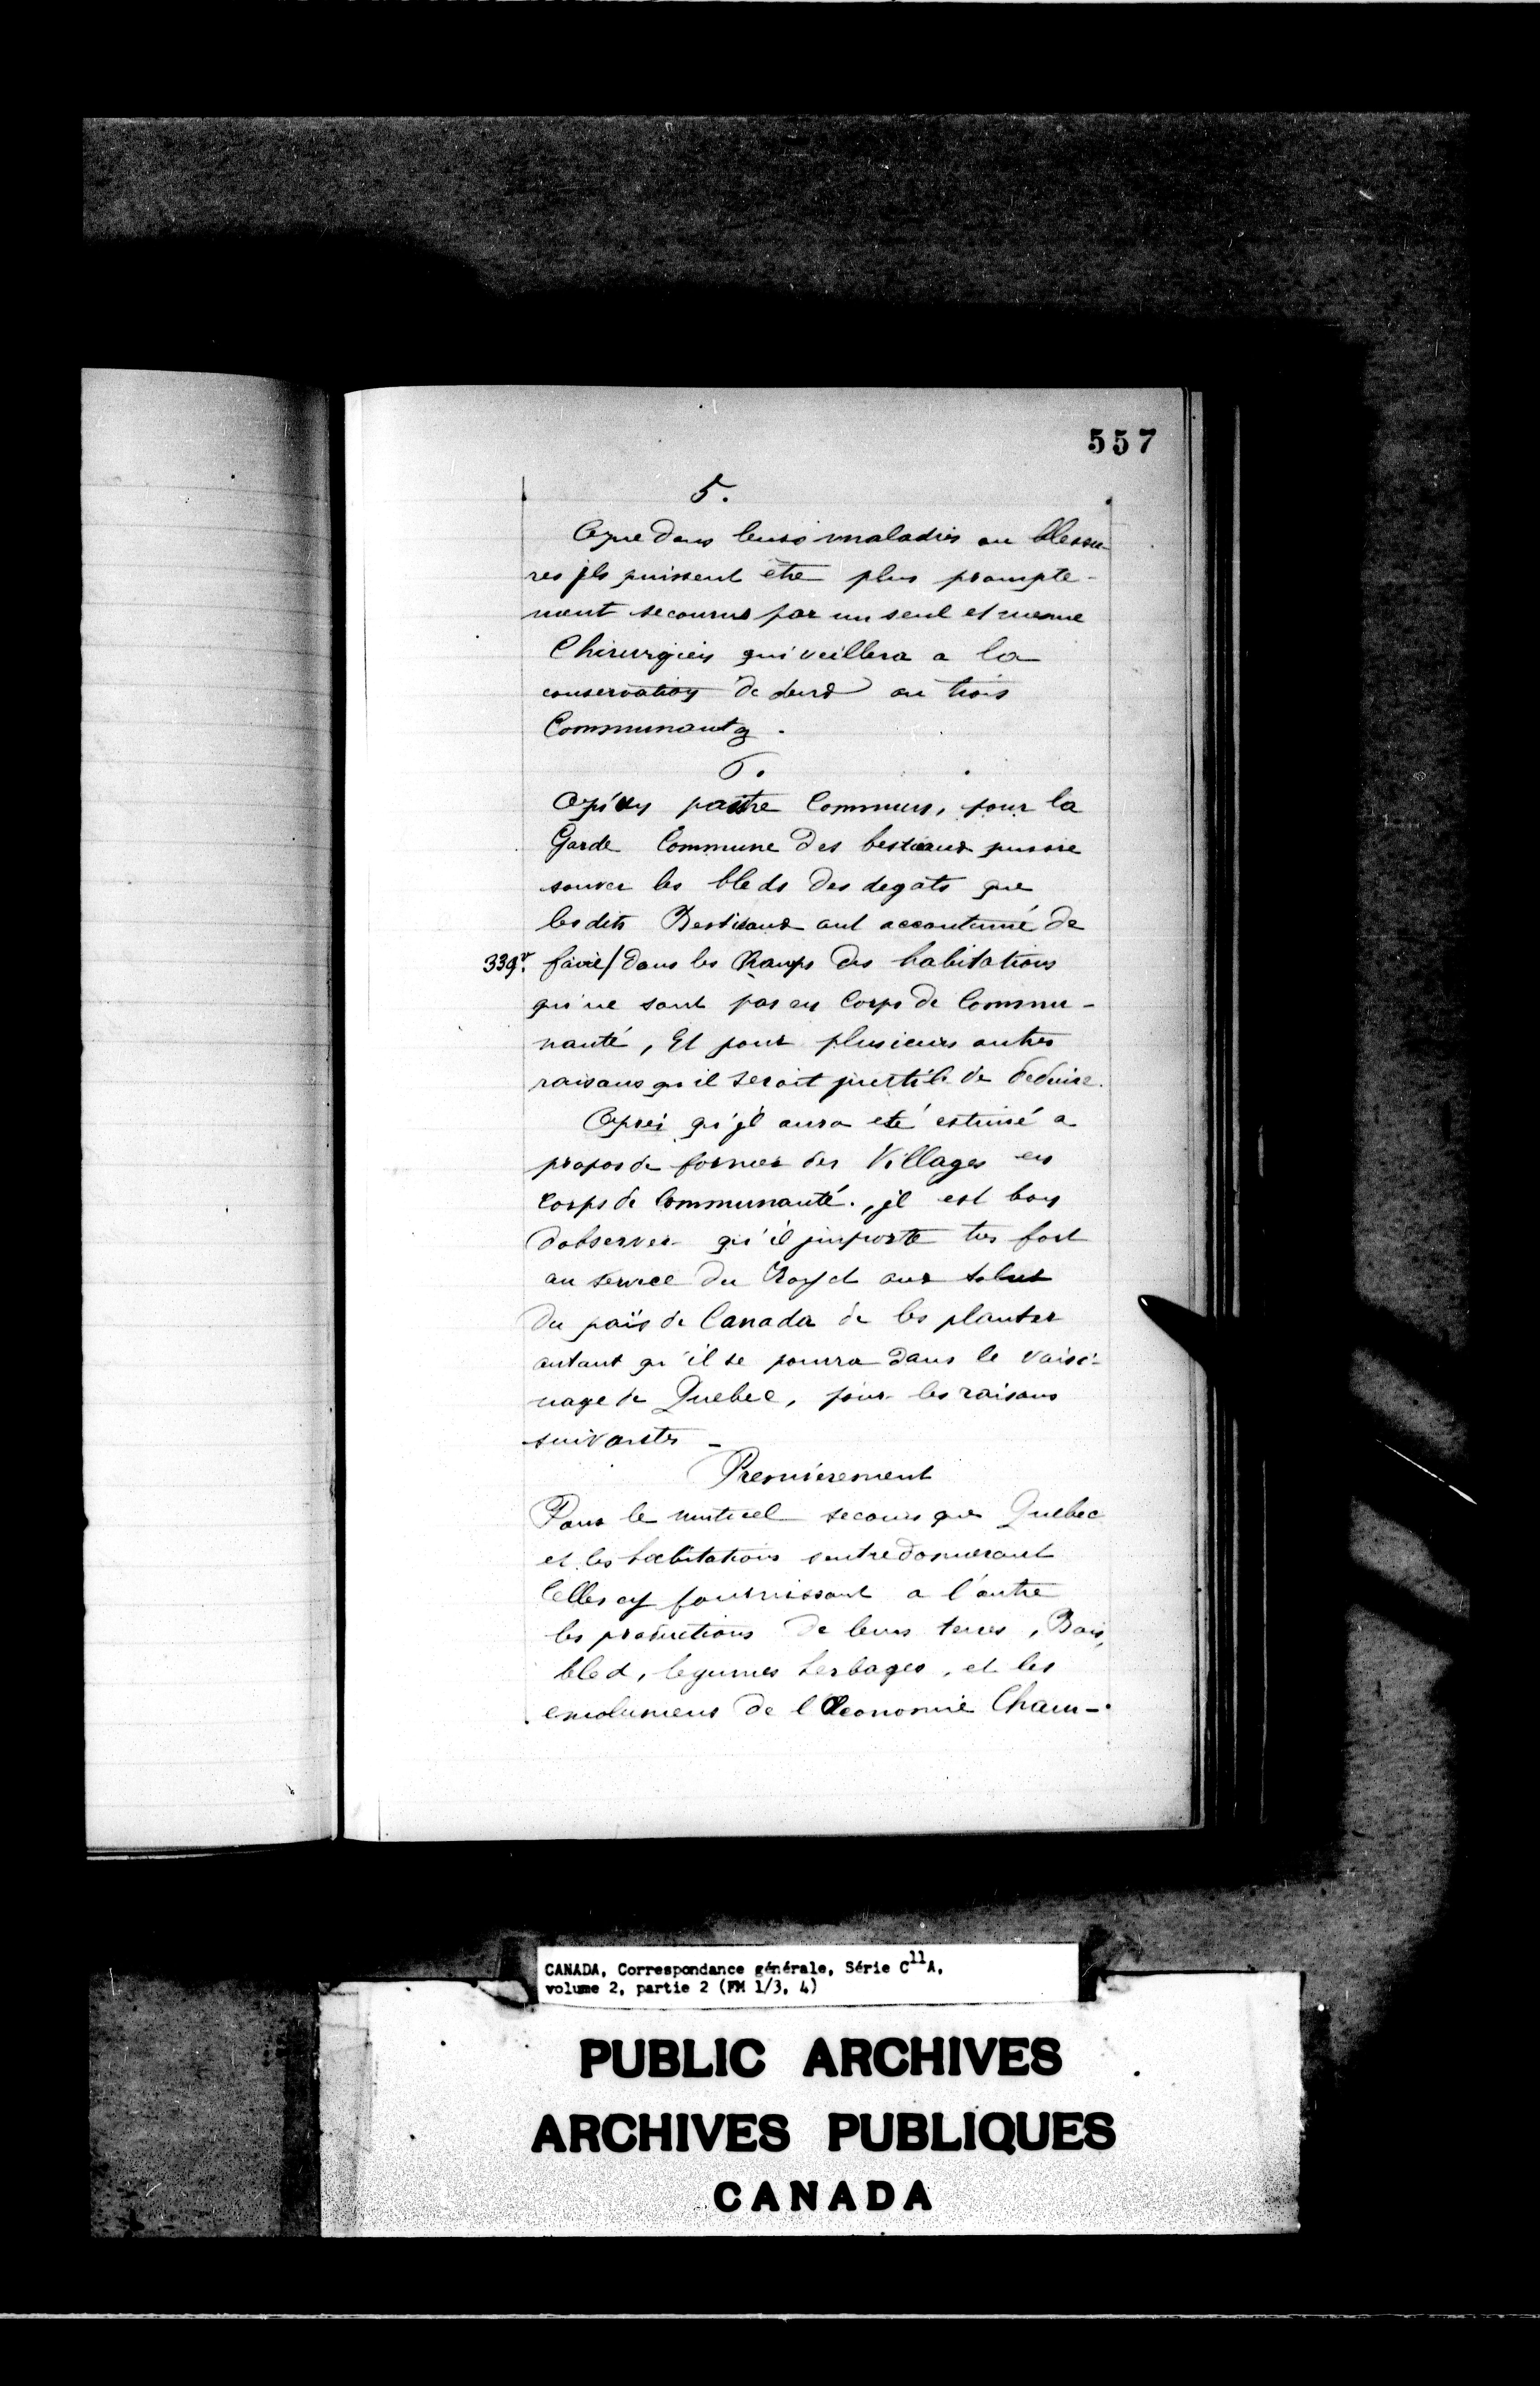 557
5.
Aque dans leurs maladies ou blessu-
res jls puissent etre plus prompte-
ment secourus par un seul et mesme
Chirurgien qui veillera a la
conservation de deux ou trois
Communautz.
6.
Aqu'un pastre Commun, pour la
Garde Commune des bestiaux puisse
sauver les bleds des degats que
lesdits Bestiaux ont accoutumé de
339v. faire/ dans les Champs des habitations
qui ne sont pas en Corps de Commu-
nauté, Et pour plusieurs autres
raisons qu'il seroit jnutile de deduire.
Aprés qu'jl aura eté estimé a
propos de former des Villages en
Corps de Communauté., jl est bon
dobserver qu'il jmporte tres fort
au service du Roy et aux salut
du païs de Canada de les planter
autant qu'il se pourra dans le voisi-
nage de Quebec, pour les raisons
suivantes -
Premierement
Pour le mutuel secours que Quebec
et les habitations sentredonneront
Celles cy fournissant a l'autre
les productions de leurs terres, Bois,
bled, legumes herbages, et les
emolumens de l'Oeconomie Cham-
CANADA, Correspondance générale, Série C11A,
volume 2, partie 2 (FM 1/3, 4)
PUBLIC ARCHIVES
ARCHIVES PUBLIQUES
CANADA